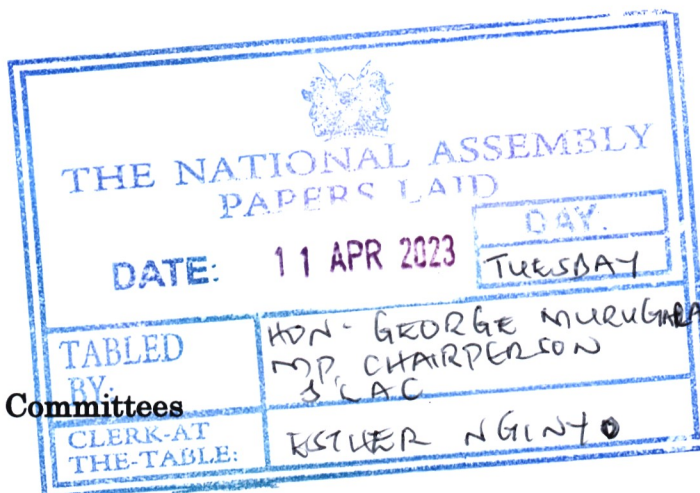 THE NATIONAL ASSEMBLY
PAPERS LAID
DATE: 11 APR 2023
DAY.
TUESDAY
TABLED BY:
HON. GEORGE MURUGARA
MP, CHAIRPERSON
JLAC
Committees
CLERK-AT THE-TABLE:
ESTHER NGINYO